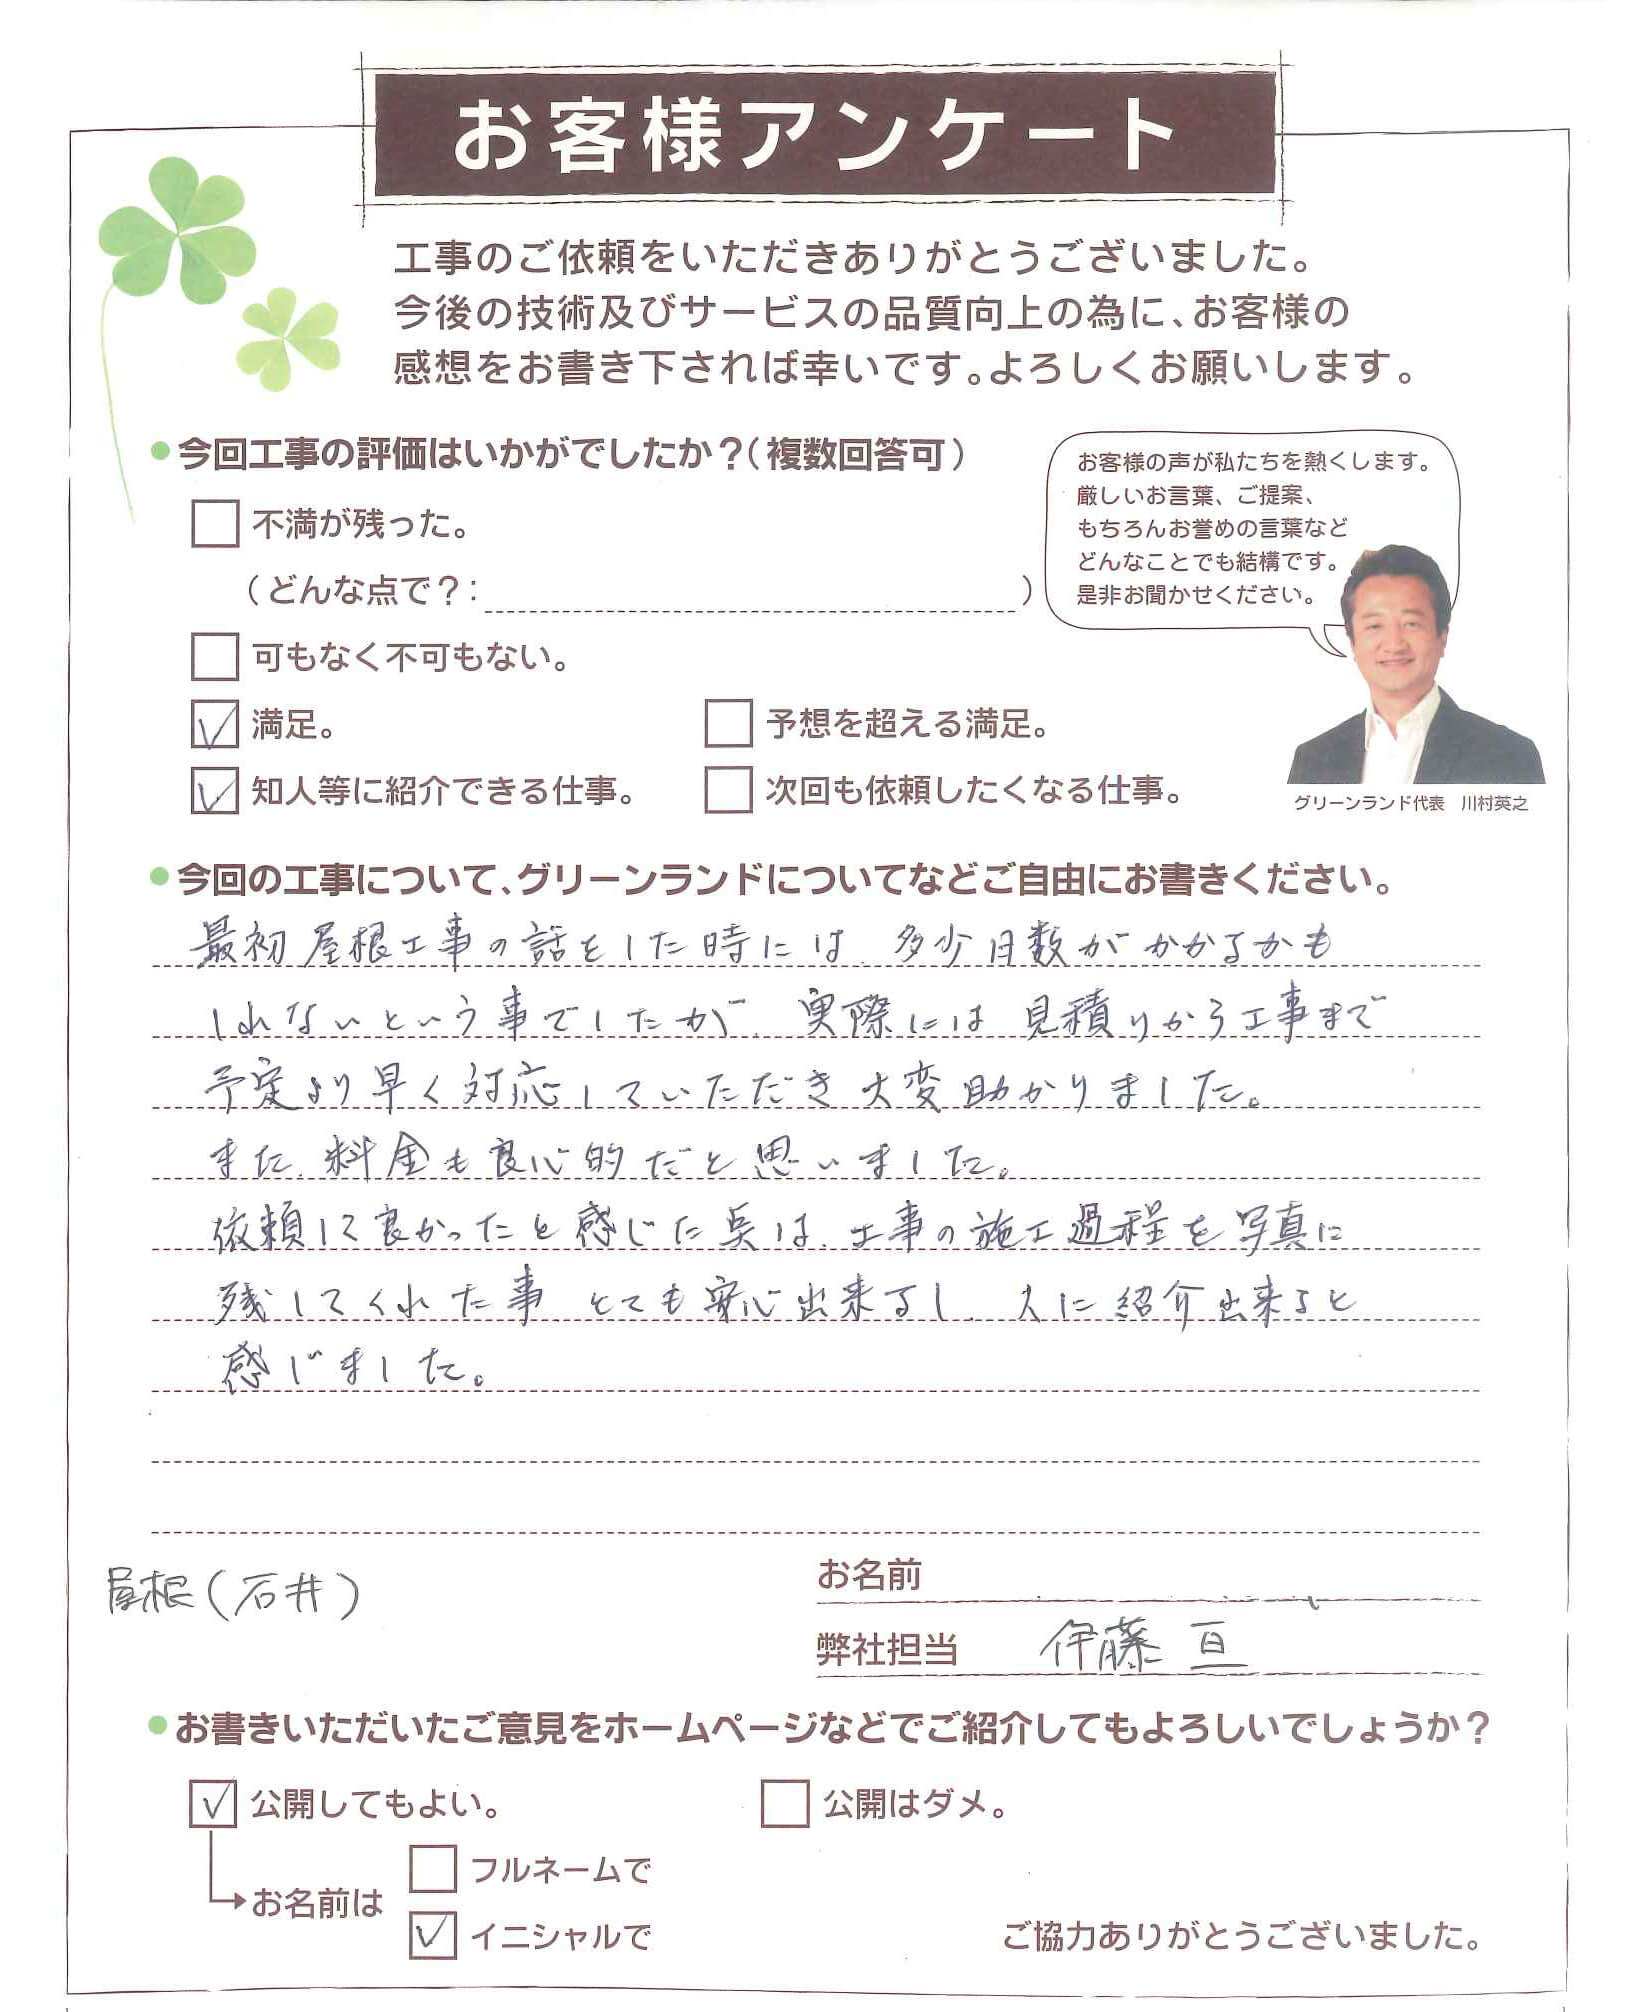 お客様アンケート
工事のご依頼をいただきありがとうございました。
今後の技術及びサービスの品質向上の為に、お客様の
感想をお書き下されば幸いです。よろしくお願いします。
今回工事の評価はいかがでしたか？（複数回答可）
不満が残った。
（どんな点で？：　）
可もなく不可もない。
満足。
予想を超える満足。
知人等に紹介できる仕事。
次回も依頼したくなる仕事。
お客様の声が私たちを熱くします。
厳しいお言葉、ご提案、
もちろんお誉めの言葉など
どんなことでも結構です。
是非お聞かせください。
グリーンランド代表　川村英之
今回の工事について、グリーンランドについてなどご自由にお書きください。
最初屋根工事の話をした時には、多少日数がかかるかも
しれないという事でしたが、実際には見積りから工事まで
予定より早く対応していただき大変助かりました。
また、料金も良心的だと思いました。
依頼して良かったと感じた点は、工事の施工過程を写真に
残してくれた事、とても安心出来るし、人に紹介出来ると
感じました。
屋根（石井）
お名前
弊社担当　伊藤 亘
お書きいただいたご意見をホームページなどでご紹介してもよろしいでしょうか？
公開してもよい。
公開はダメ。
お名前は
フルネームで
イニシャルで
ご協力ありがとうございました。